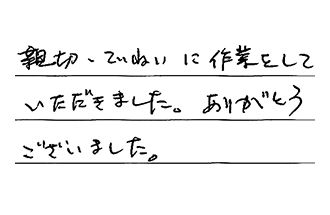 親切・ていねいに作業をして
いただきました。ありがとう
ございました。